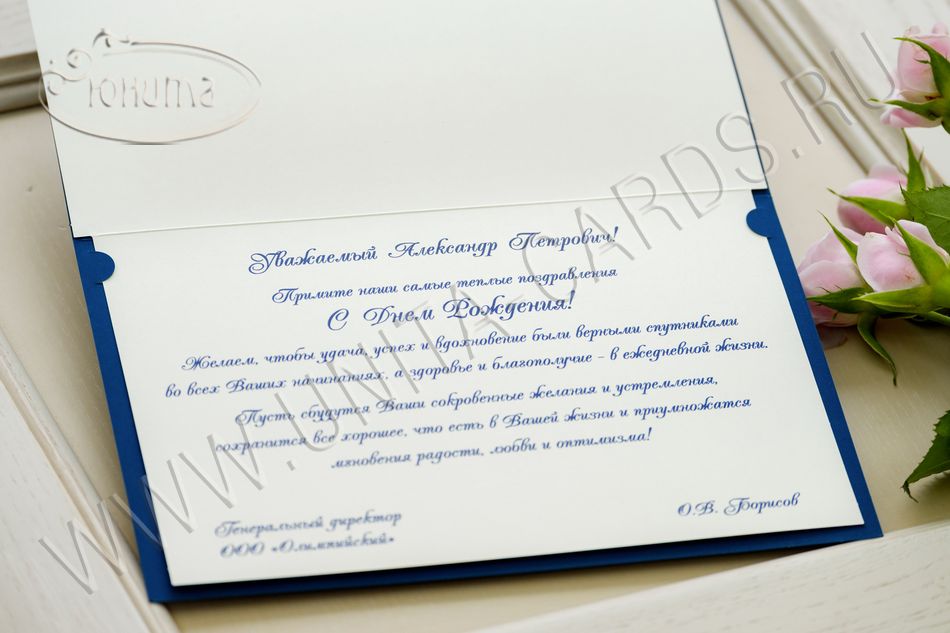 Юнита
Уважаемый Александр Петрович!
Примите наши самые теплые поздравления
С Днем Рождения!
Желаем, чтобы удача, успех и вдохновение были верными спутниками
во всех Ваших начинаниях, а здоровье и благополучие - в ежедневной жизни.
Пусть сбудутся Ваши сокровенные желания и устремления,
сохранится все хорошее, что есть в Вашей жизни и приумножатся
мгновения радости, любви и оптимизма!
Генеральный директор
ООО «Олимпийский»
О.В. Борисов
WWW.UNITA-CARDS.RU